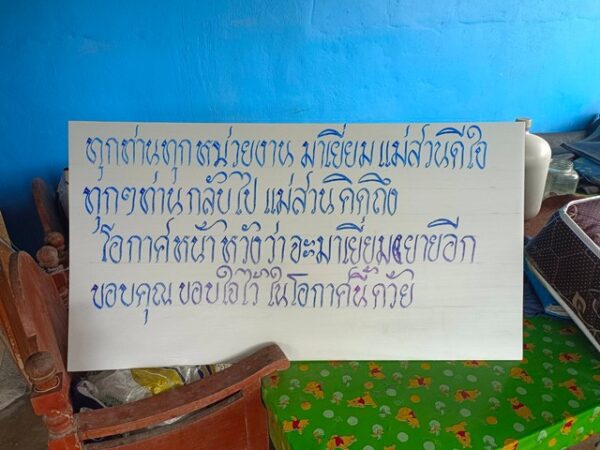 ทุกท่านทุกหน่วยงาน มาเยี่ยม แม่สวนดีใจ
ทุกๆท่าน กลับไป แม่สวน คิดถึง
โอกาศหน้า หวังว่า จะมาเยี่ยมยายอีก
ขอบคุณ ขอบใจไว้ ในโอกาศนี้ ด้วย